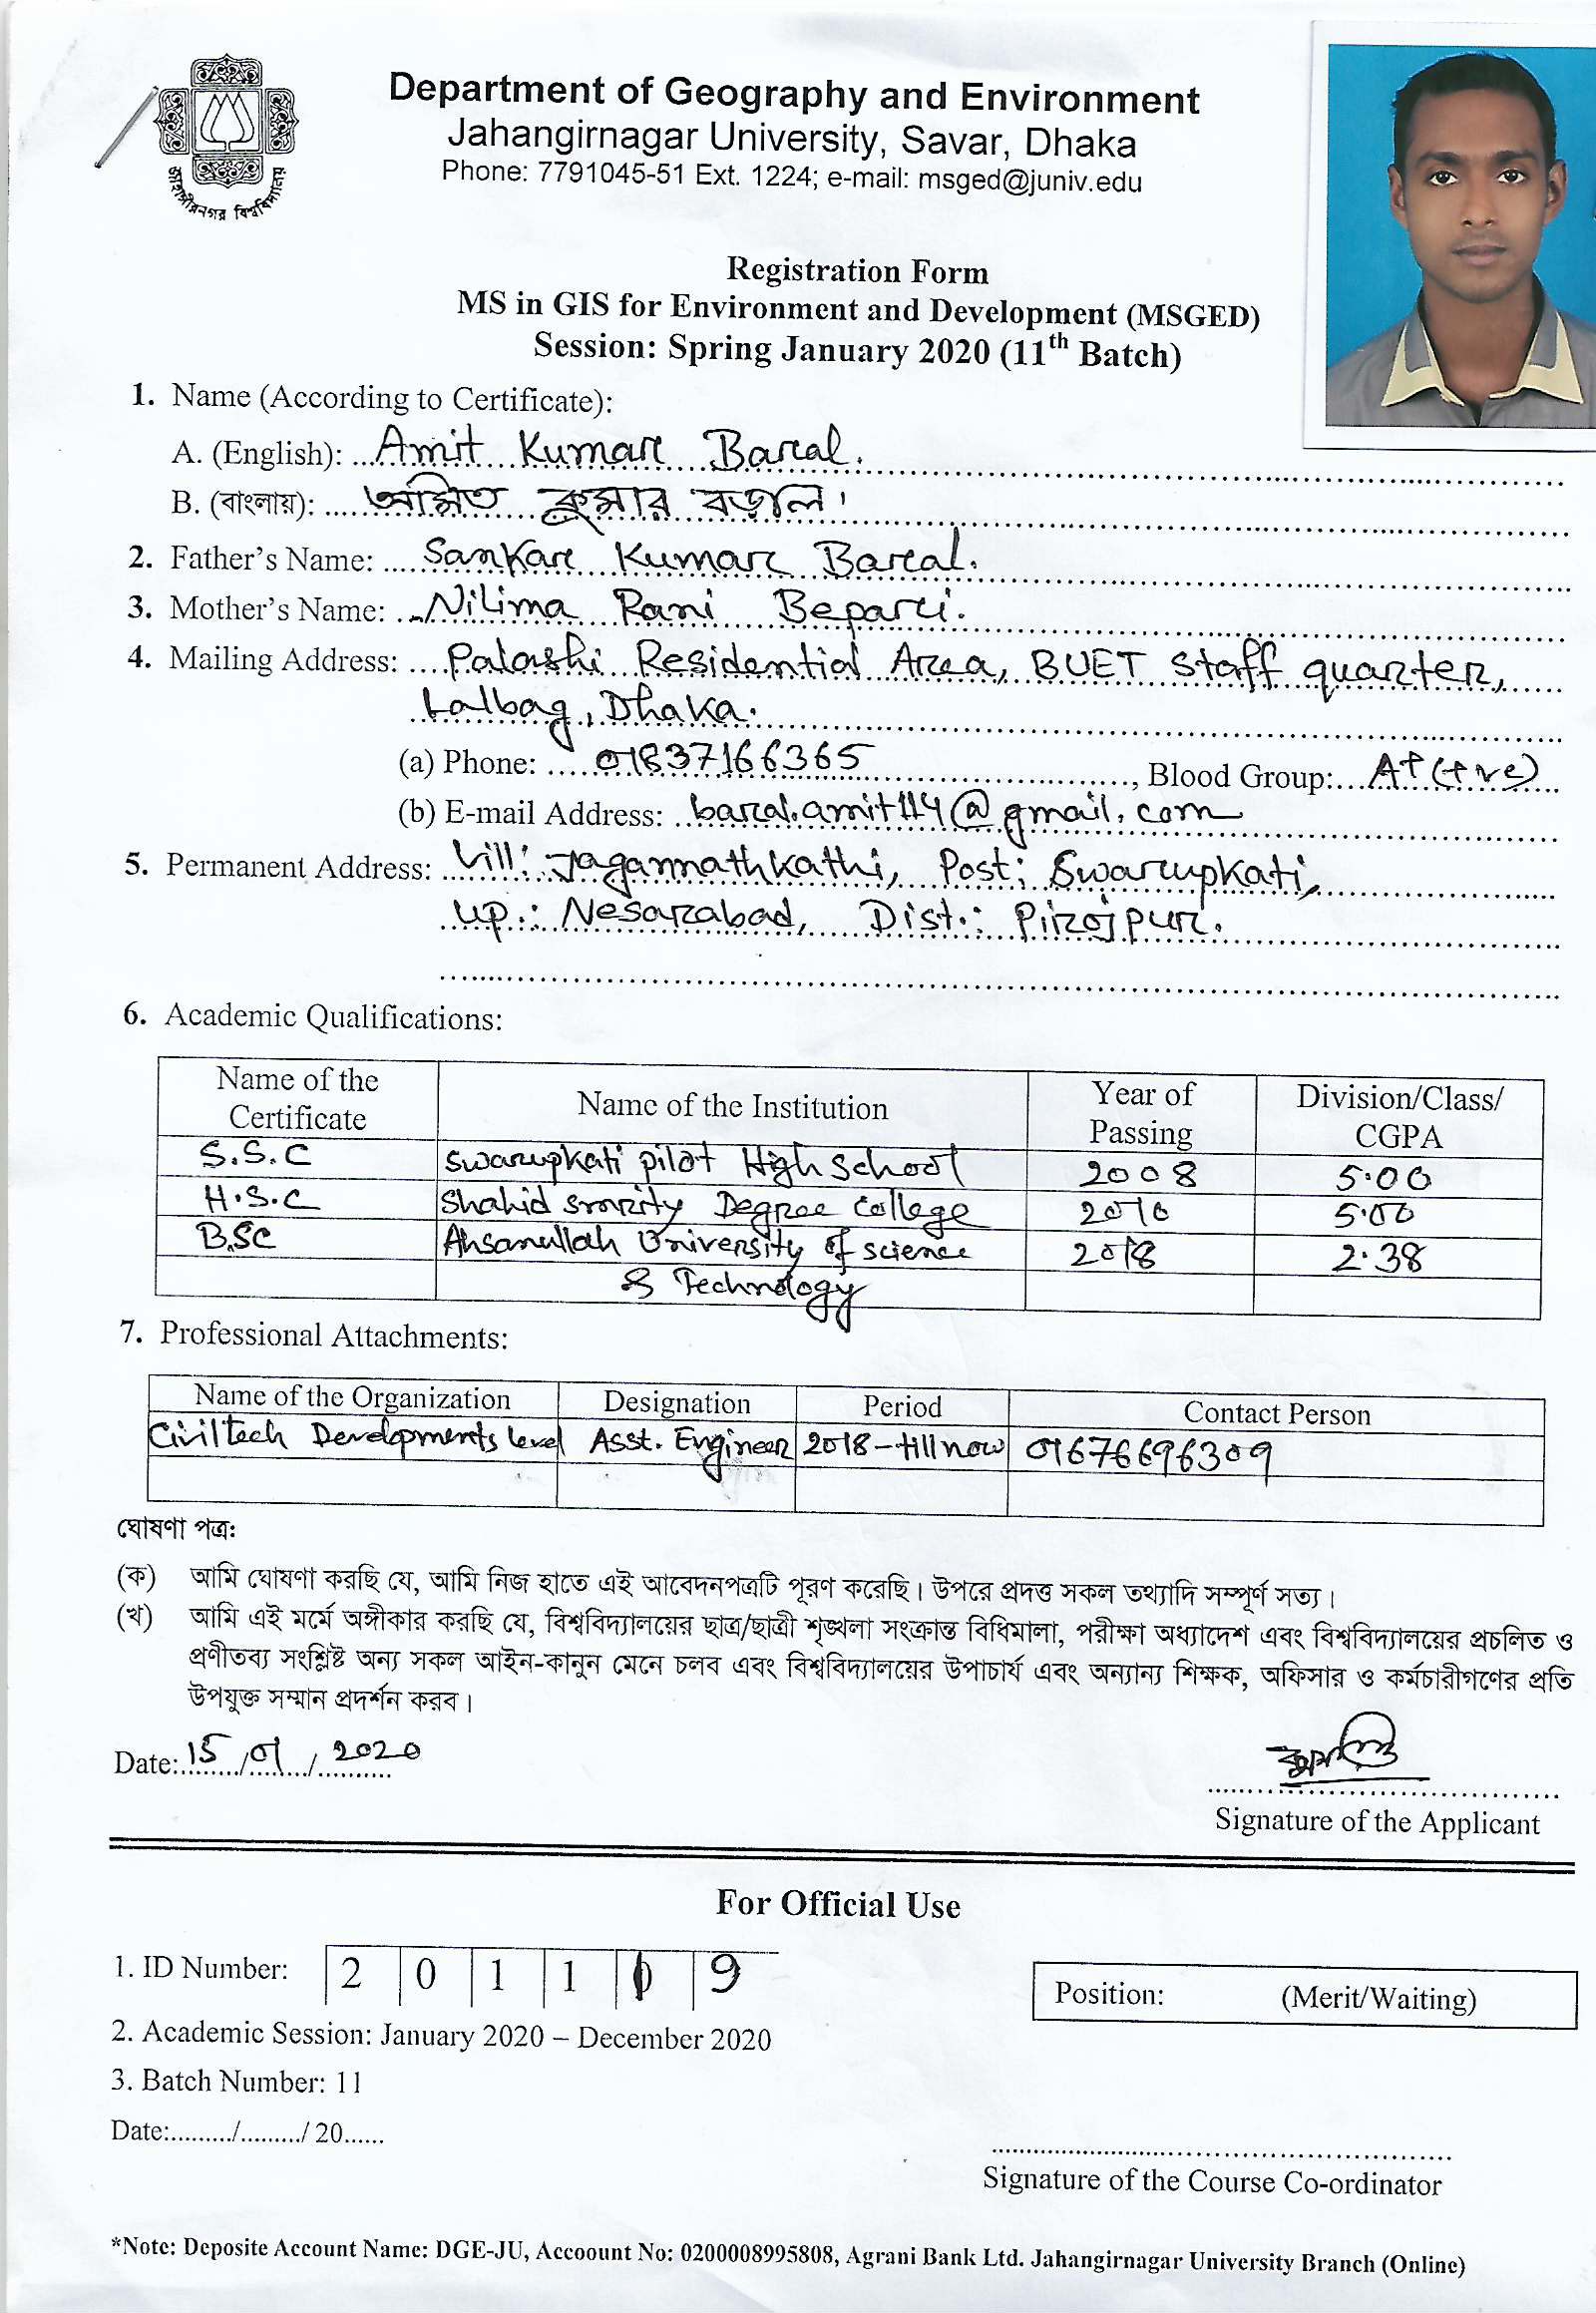 জাহাঙ্গীরনগর বিশ্ববিদ্যালয়
Department of Geography and Environment
Jahangirnagar University, Savar, Dhaka
Phone: 7791045-51 Ext. 1224; e-mail: msged@juniv.edu
Registration Form
MS in GIS for Environment and Development (MSGED)
Session: Spring January 2020 (11th Batch)
1. Name (According to Certificate):
A. (English): Amit Kumar Baral.
B. (বাংলায়): অমিত কুমার বড়াল।
2. Father's Name: Sankar Kumar Baral.
3. Mother's Name: Nilima Rani Bepari.
4. Mailing Address: Palashi Residential Area, BUET Staff quarter,
Lalbag, Dhaka.
(a) Phone: 01837166365, Blood Group: A+ (+ve)
(b) E-mail Address: baral.amit114@gmail.com
5. Permanent Address: Vill: Jagannathkathi, Post: Swarupkati,
up.: Nesarabad, Dist.: Pirojpur.
6. Academic Qualifications:
Name of the Certificate Name of the Institution Year of Passing Division/Class/CGPA
S.S.C Swarupkati pilot High School 2008 5.00
H.S.C Shahid smrity Degree College 2010 5.00
B.SC Ahsanullah University of science 2018 2.38
& Technology
7. Professional Attachments:
Name of the Organization Designation Period Contact Person
Civiltech Developments level Asst. Engineer 2018-till now 01676696309
ঘোষণা পত্র:
(ক) আমি ঘোষণা করছি যে, আমি নিজ হাতে এই আবেদনপত্রটি পূরণ করেছি। উপরে প্রদত্ত সকল তথ্যাদি সম্পূর্ণ সত্য।
(খ) আমি এই মর্মে অঙ্গীকার করছি যে, বিশ্ববিদ্যালয়ের ছাত্র/ছাত্রী শৃঙ্খলা সংক্রান্ত বিধিমালা, পরীক্ষা অধ্যাদেশ এবং বিশ্ববিদ্যালয়ের প্রচলিত ও
প্রণীতব্য সংশ্লিষ্ট অন্য সকল আইন-কানুন মেনে চলব এবং বিশ্ববিদ্যালয়ের উপাচার্য এবং অন্যান্য শিক্ষক, অফিসার ও কর্মচারীগণের প্রতি
উপযুক্ত সম্মান প্রদর্শন করব।
Date: 15/01/2020
Signature of the Applicant
For Official Use
1. ID Number: 2 0 1 1 9
Position: (Merit/Waiting)
2. Academic Session: January 2020 – December 2020
3. Batch Number: 11
Date:........./........./ 20......
Signature of the Course Co-ordinator
*Note: Deposite Account Name: DGE-JU, Accoount No: 0200008995808, Agrani Bank Ltd. Jahangirnagar University Branch (Online)